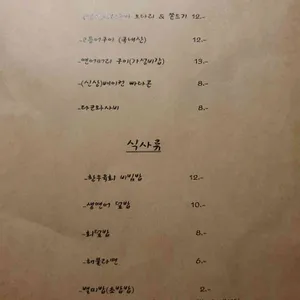 오다리 & 쫀드기 12.-
구이 (국내산) 12.-
-연어머리 구이(가실비찜) 13.-
-(신상)베이컨 빠다콘 8.-
-타코와사비 8.-
식사류
-한우육회 비빔밥 12.-
-생연어 덮밥 10.-
-회덮밥 8.-
-해물라면 6.-
-별미밥(초밥밥) 2.-